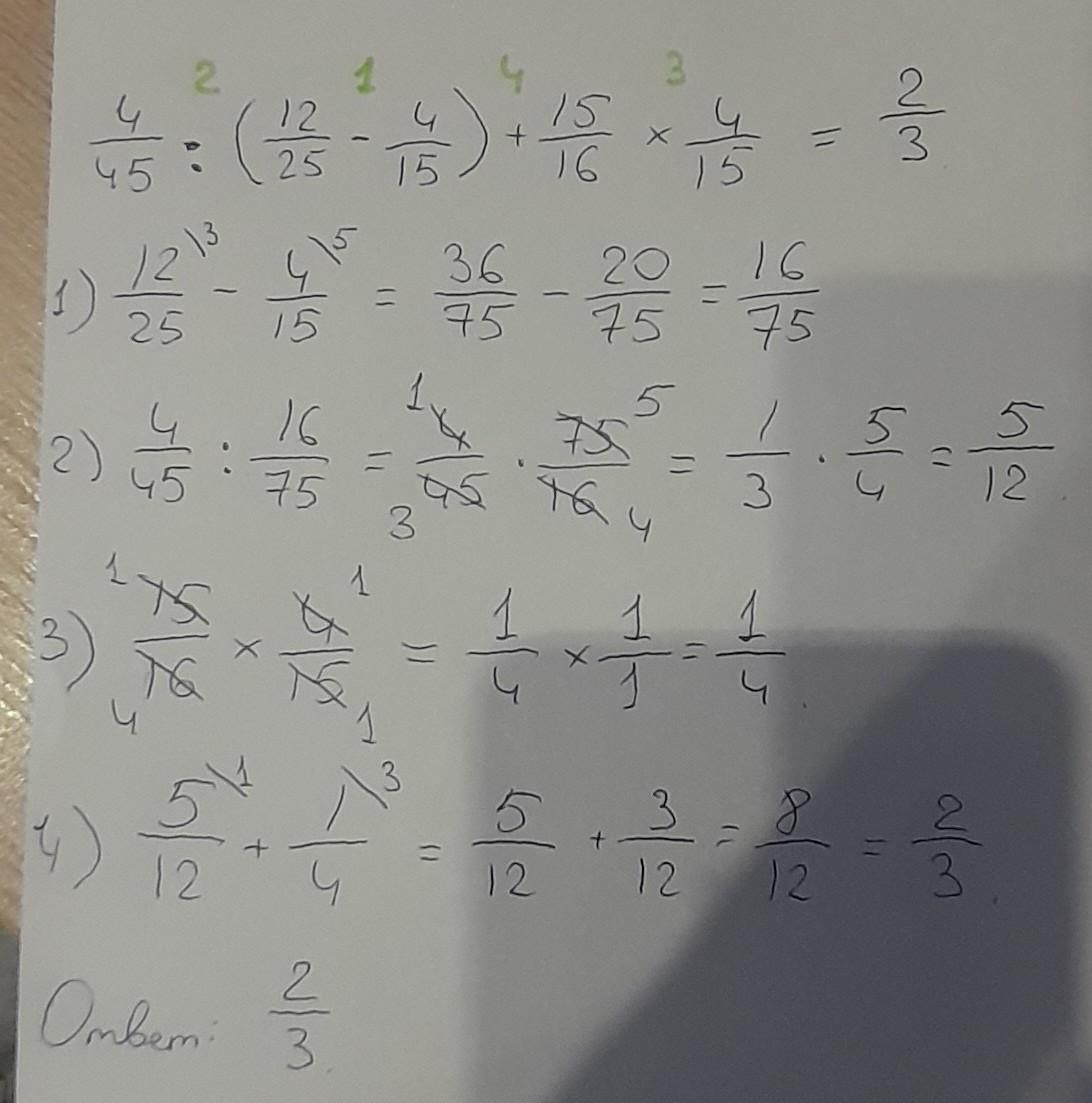 2 1 4 3
4/45 : (12/25 - 4/15) + 15/16 × 4/15 = 2/3
1) 12\3/25 - 4\5/15 = 36/75 - 20/75 = 16/75
2) 4/45 : 16/75 = 1 4/45 3 · 75 5/16 4 = 1/3 · 5/4 = 5/12
3) 1 15/16 4 × 4 1/15 1 = 1/4 × 1/1 = 1/4.
4) 5\1/12 + 1\3/4 = 5/12 + 3/12 = 8/12 = 2/3.
Ответ: 2/3.